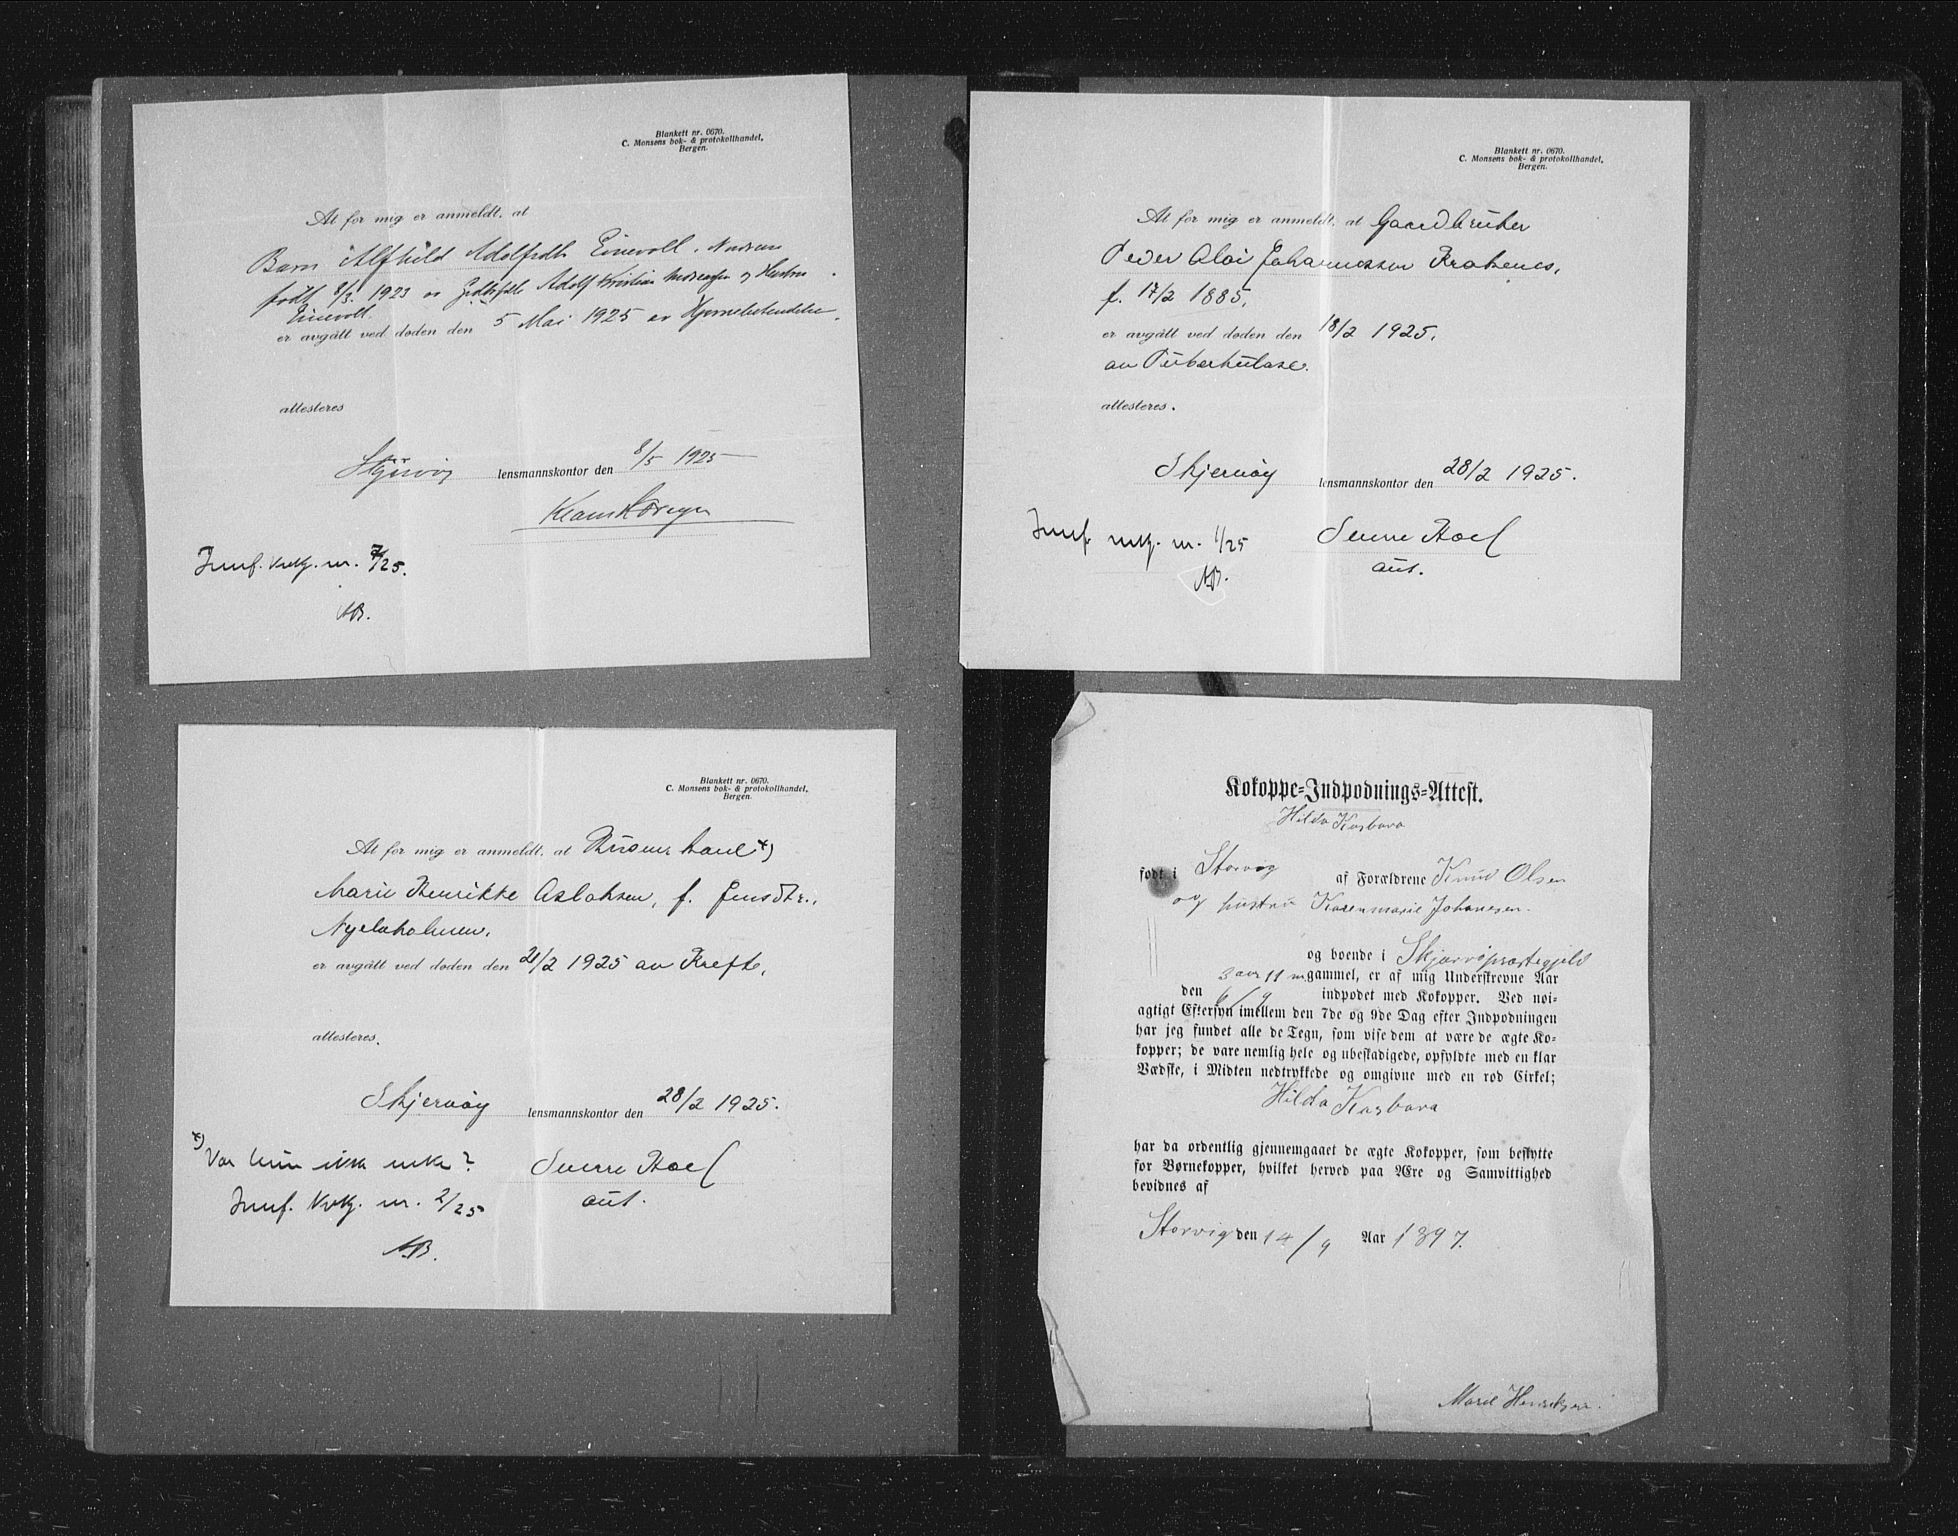 Blankett nr. 0670.
C. Monsens bok- & protokollhandel,
Bergen.
At for mig er anmeldt, at
Barn Alfhild Adolfsdtr Einevoll, Nordreisa
født 8/3 1923 av Adolf Kristian og Hustru
Einevoll
er avgått ved døden den 5 Mai 1925 av Hjernebetendelse.
attesteres
Skjervøy lensmannskontor den 8/5 1925
Innf. nr. 7/25.
AB.
Blankett nr. 0670.
C. Monsens bok- & protokollhandel,
Bergen.
At for mig er anmeldt, at Gaardbruker
Peder Olai Johannessen Kraknes,
f. 17/2 1885,
er avgått ved døden den 18/2 1925,
av Tuberkulose.
attesteres.
Skjervøy lensmannskontor den 28/2 1925.
Innf. nr. 1/25
AB.
Sverre Hoel
aut.
Blankett nr. 0670.
C. Monsens bok- & protokollhandel,
Bergen.
At for mig er anmeldt, at *)
Marie Henrikke Aslaksen, f. Jensdtr.,
er avgått ved døden den 21/2 1925 av Kreft,
attesteres.
Skjervøy lensmannskontor den 28/2 1925.
*) Var hun ikke enke?
Sverre Hoel
aut.
Innf. nr. 2/25
AB.
Kokoppe-Indpodnings-Attest.
Hilda Kasbara
født i Storvig af Forældrene Knud Olsen
og hustru Karenmarie Johansen.
og boende i Skjærvøpræstegjeld
3 aar 11 m gammel, er af mig Underskrevne Aar
den 6/9 indpodet med Kokopper. Ved nøi-
agtigt Eftersyn imellem den 7de og 9de Dag efter Indpodningen
har jeg fundet alle de Tegn, som vise dem at være de ægte Ko-
kopper; de vare nemlig hele og ubeskadigede, opfyldte med en klar
Vædske, i Midten nedtrykkede og omgivne med en rød Cirkel;
Hilda Kasbara
har da ordentlig gjennemgaaet de ægte Kokopper, som beskytte
for Børnekopper, hvilket herved paa Ære og Samvittighed
bevidnes af
Storvig den 14/9 Aar 1897.
Marie Henriksen.